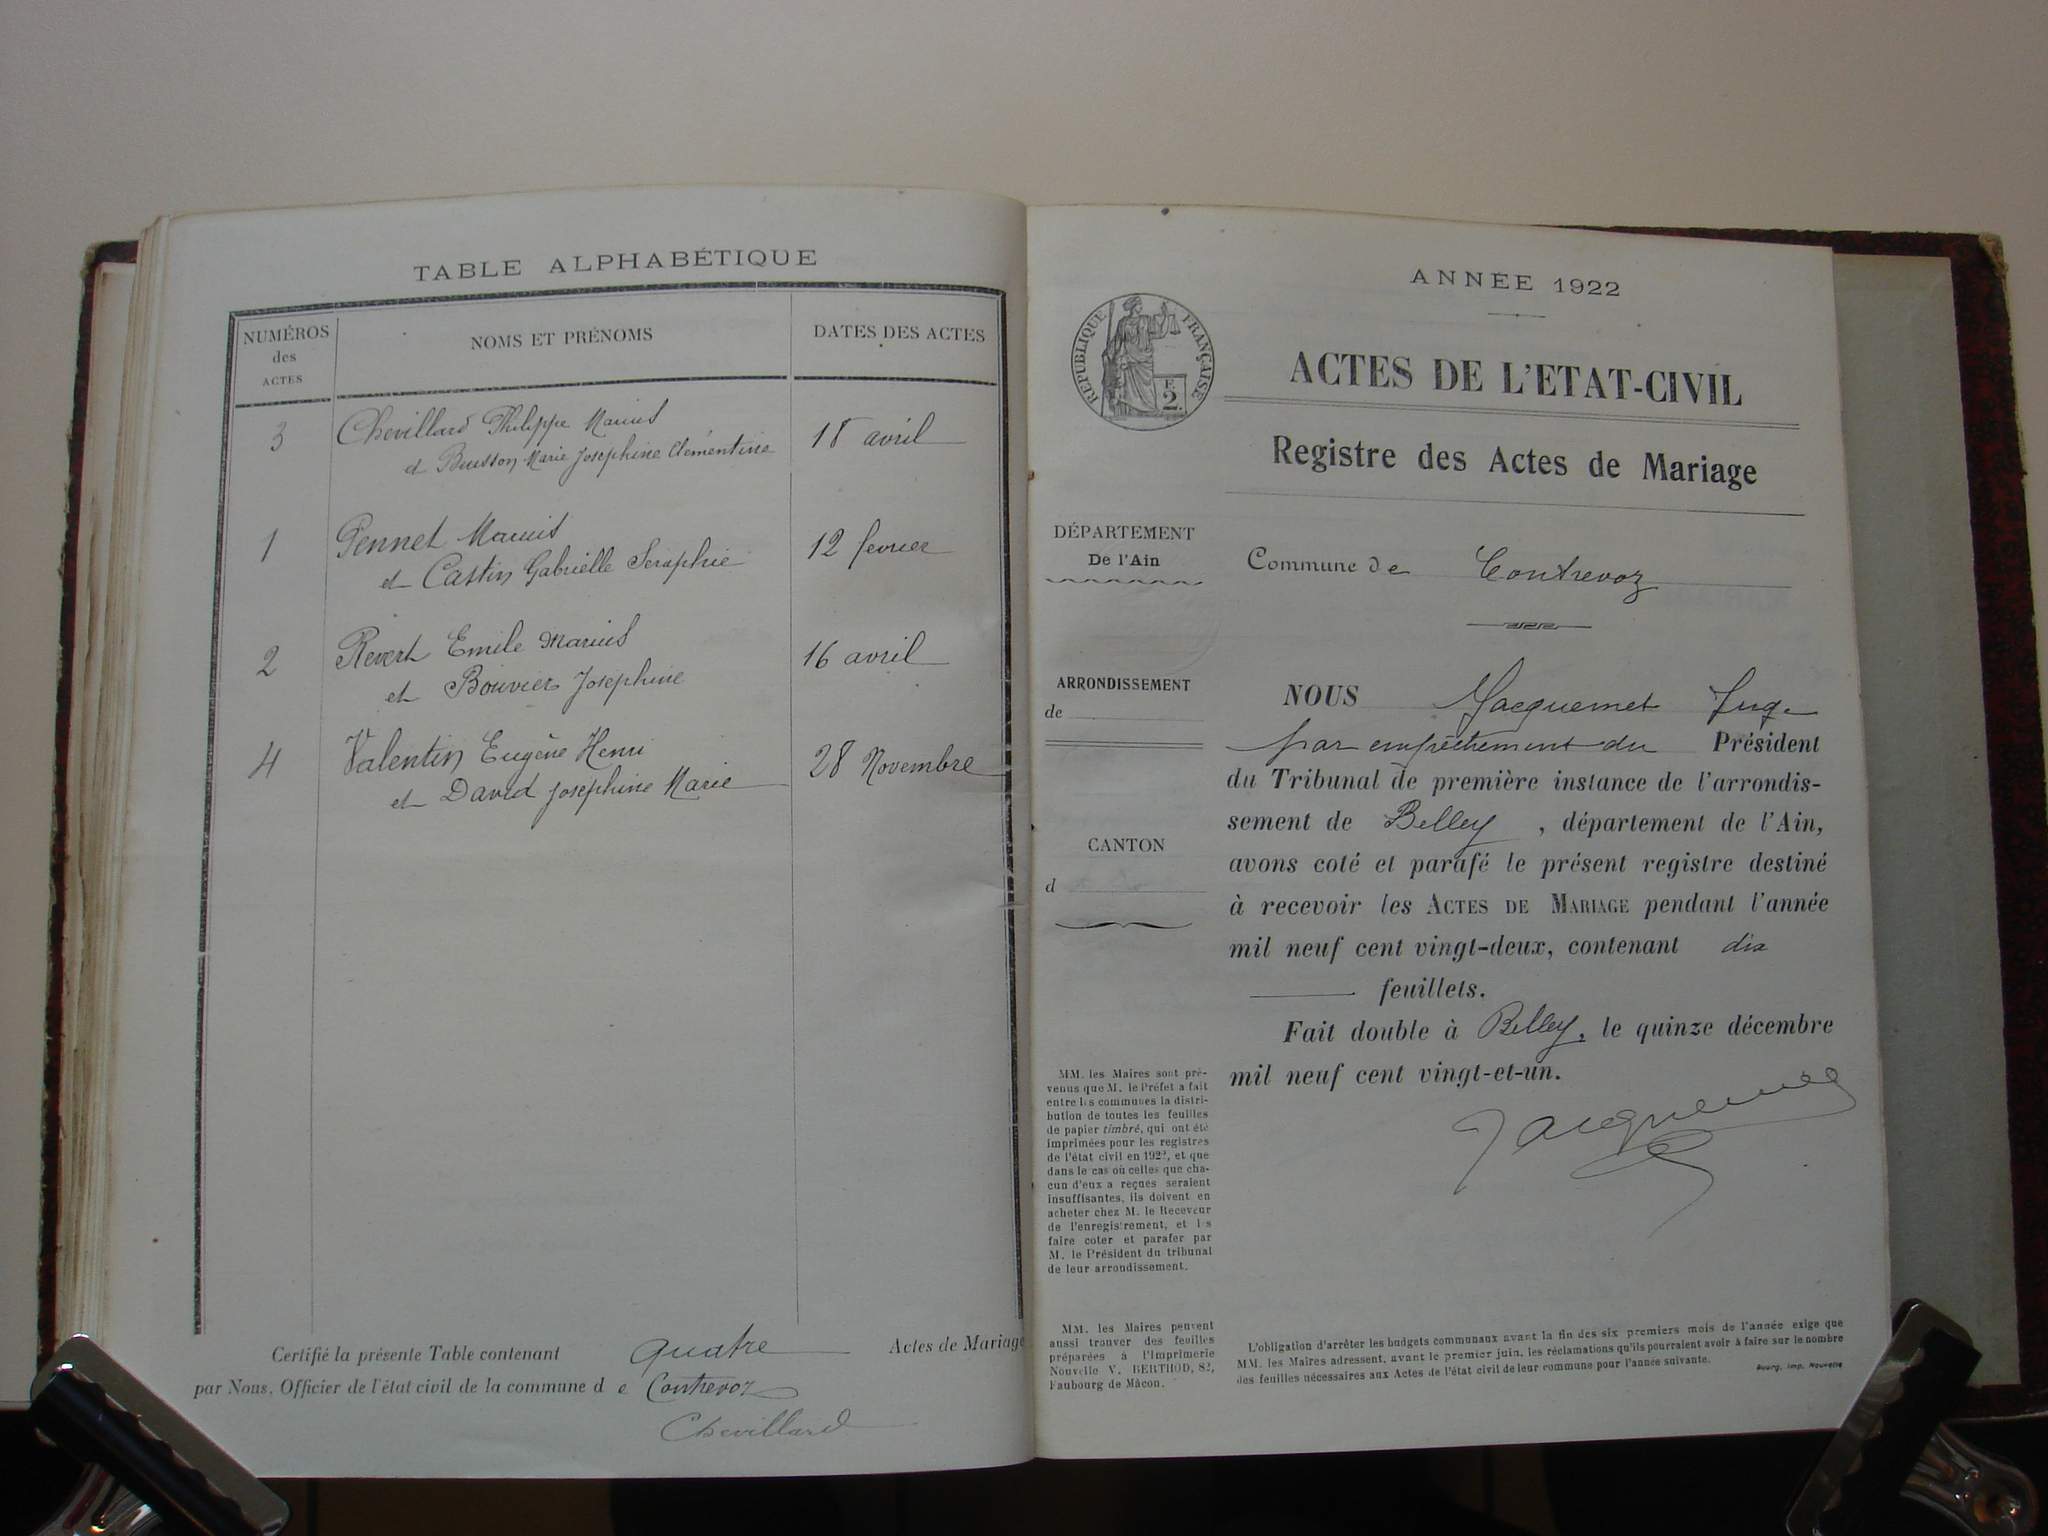 TABLE ALPHABÉTIQUE
NUMÉROS
des
ACTES
NOMS ET PRÉNOMS
DATES DES ACTES
3 Chevillard Philippe Marius
et Buisson Marie Josephine Clémentine 18 avril
1 Pennet Marius
et Castin Gabrielle Seraphie 12 fevrier
2 Revert Emile Marius
et Bouvier Josephine 16 avril
4 Valentin Eugène Henri
et David Josephine Marie 28 Novembre
Certifié la présente Table contenant Quatre Actes de Mariage
par Nous, Officier de l'état civil de la commune de Contrevoz
Chevillard
ANNÉE 1922
RÉPUBLIQUE FRANÇAISE
F.
2.
ACTES DE L'ETAT-CIVIL
Registre des Actes de Mariage
DÉPARTEMENT
De l'Ain
ARRONDISSEMENT
de
CANTON
d
Commune de Contrevoz
NOUS Jacquemet Juge
par empêchement du Président
du Tribunal de première instance de l'arrondis-
sement de Belley, département de l'Ain,
avons coté et parafé le présent registre destiné
à recevoir les ACTES DE MARIAGE pendant l'année
mil neuf cent vingt-deux, contenant dix
feuillets.
Fait double à Belley, le quinze décembre
mil neuf cent vingt-et-un.
Jacquemet
MM. les Maires sont pré-
venus que M. le Préfet a fait
entre les communes la distri-
bution de toutes les feuilles
de papier timbré, qui ont été
imprimées pour les registres
de l'état civil en 1922, et que
dans le cas où celles que cha-
cun d'eux a reçues seraient
insuffisantes, ils doivent en
acheter chez M. le Receveur
de l'enregistrement, et les
faire coter et parafer par
M. le Président du tribunal
de leur arrondissement.
MM. les Maires peuvent
aussi trouver des feuilles
préparées à l'Imprimerie
Nouvelle V. BERTHOD, 82,
Faubourg de Mâcon.
L'obligation d'arrêter les budgets communaux avant la fin des six premiers mois de l'année exige que
MM. les Maires adressent, avant le premier juin, les réclamations qu'ils pourraient avoir à faire sur le nombre
des feuilles nécessaires aux Actes de l'état civil de leur commune pour l'année suivante.
Bourg, Imp. Nouvelle